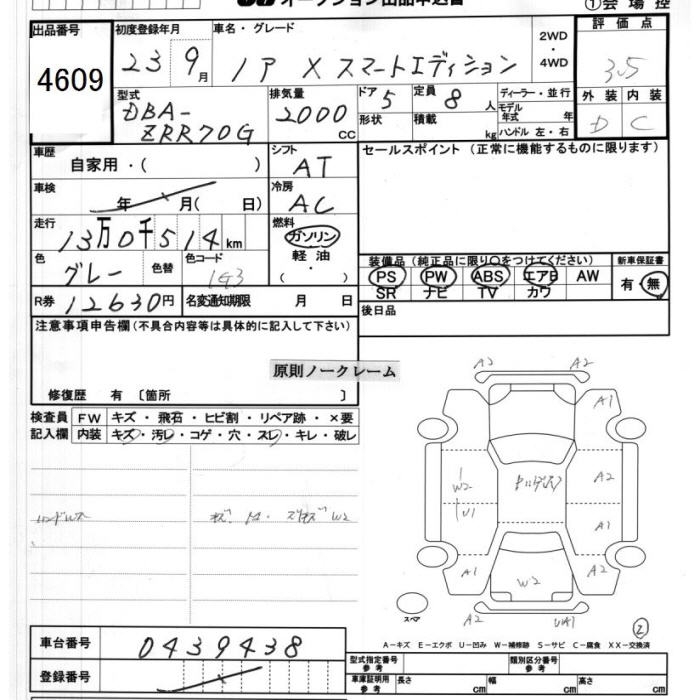 オークション出品申込書
①会場控
出品番号
4609
初度登録年月
23 9月
車名・グレード
ノア X スマートエディション
2WD
・
4WD
評価点
3.5
型式
DBA-
ZRR70G
排気量
2000 cc
ドア 5
形状
定員 8 人
積載 kg
ディーラー・並行
モデル年式 年
ハンドル 左・右
外装 内装
D C
車歴
自家用・( )
シフト
AT
セールスポイント (正常に機能するものに限ります)
車検
年 月( 日)
冷房
AC
走行
13万0千514km
燃料
ガソリン
軽油
・( )
色
グレー
色替
色コード
1G3
装備品(純正品に限り○をつけてください)
PS PW ABS エアB AW
SR ナビ TV カワ
新車保証書
有・無
R券 12630円
名変通知期限 月 日
後日品
注意事項申告欄(不具合内容等は具体的に記入して下さい)
原則ノークレーム
修復歴 有〔箇所 〕
検査員
記入欄
FW キズ・飛石・ヒビ割・リペア跡・×要
内装 キズ・汚レ・コゲ・穴・スレ・キレ・破レ
A2 A2
A1
W2
U1
A2
A1
A1
W2
A2
スペア
A2
UA1
2
A-キズ E-エクボ U-凹み W-補修跡 S-サビ C-腐食 XX-交換済
車台番号
0439438
登録番号
型式指定番号
参考
類別区分番号
参考
車庫証明用
参考
長さ cm
幅 cm
高さ cm